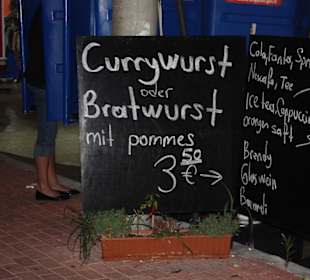 Currywurst
oder
Bratwurst
mit pommes
3 50 € →
Cola, Fanta, Spr
Nescafe, Tee
Ice tea, Cappuccin
orangen saft
Brandy
Glühwein